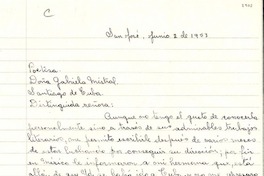 C
San José, Junio 2 de 1953
Poetisa
Doña Gabriela Mistral
Santiago de Cuba.
Distinguida señora:
Aunque no tengo el gusto de conocerla
personalmente sino a través de sus admirables trabajos
literarios, me permito escribirle después de varios meses
de estar luchando por conseguir su dirección, por fin
en México le informaron a mi hermana que está